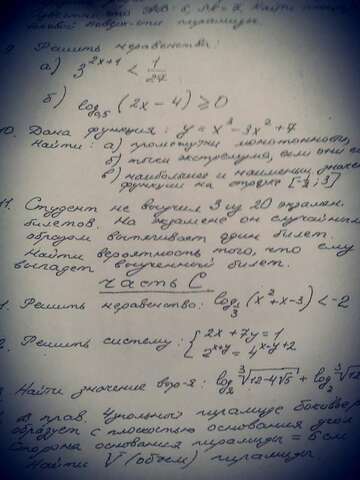 9. Решить неравенства:
а) 3^(2x+1) < 1/27
б) log_0,5 (2x - 4) ⩾ 0
10. Дана функция: y = x³ - 3x² + 7
Найти: а) промежутки монотонности,
б) точки экстремума, если они
в) наибольшее и наименьш. значен.
функции на отрезке
11. Студент не выучил 3 из 20 экзамен.
билетов. На экзамене он случайным
образом вытягивает один билет.
Найти вероятность того, что ему
выпадет выученный билет.
Часть С
1. Решить неравенство: log_1/3 (x² + x - 3) < -2
2. Решить систему: { 2x + 7y = 1
2^(x+y) = 4^(x-y+2)
Найти значение выр-я: log_2 ∛(12-4√5) + log_2 ∛(12
В прав. 4угольной пирамиде боковое
образует с плоскостью основания угол
Сторона основания пирамиды = 6 см
Найти V (объем) пирамиды